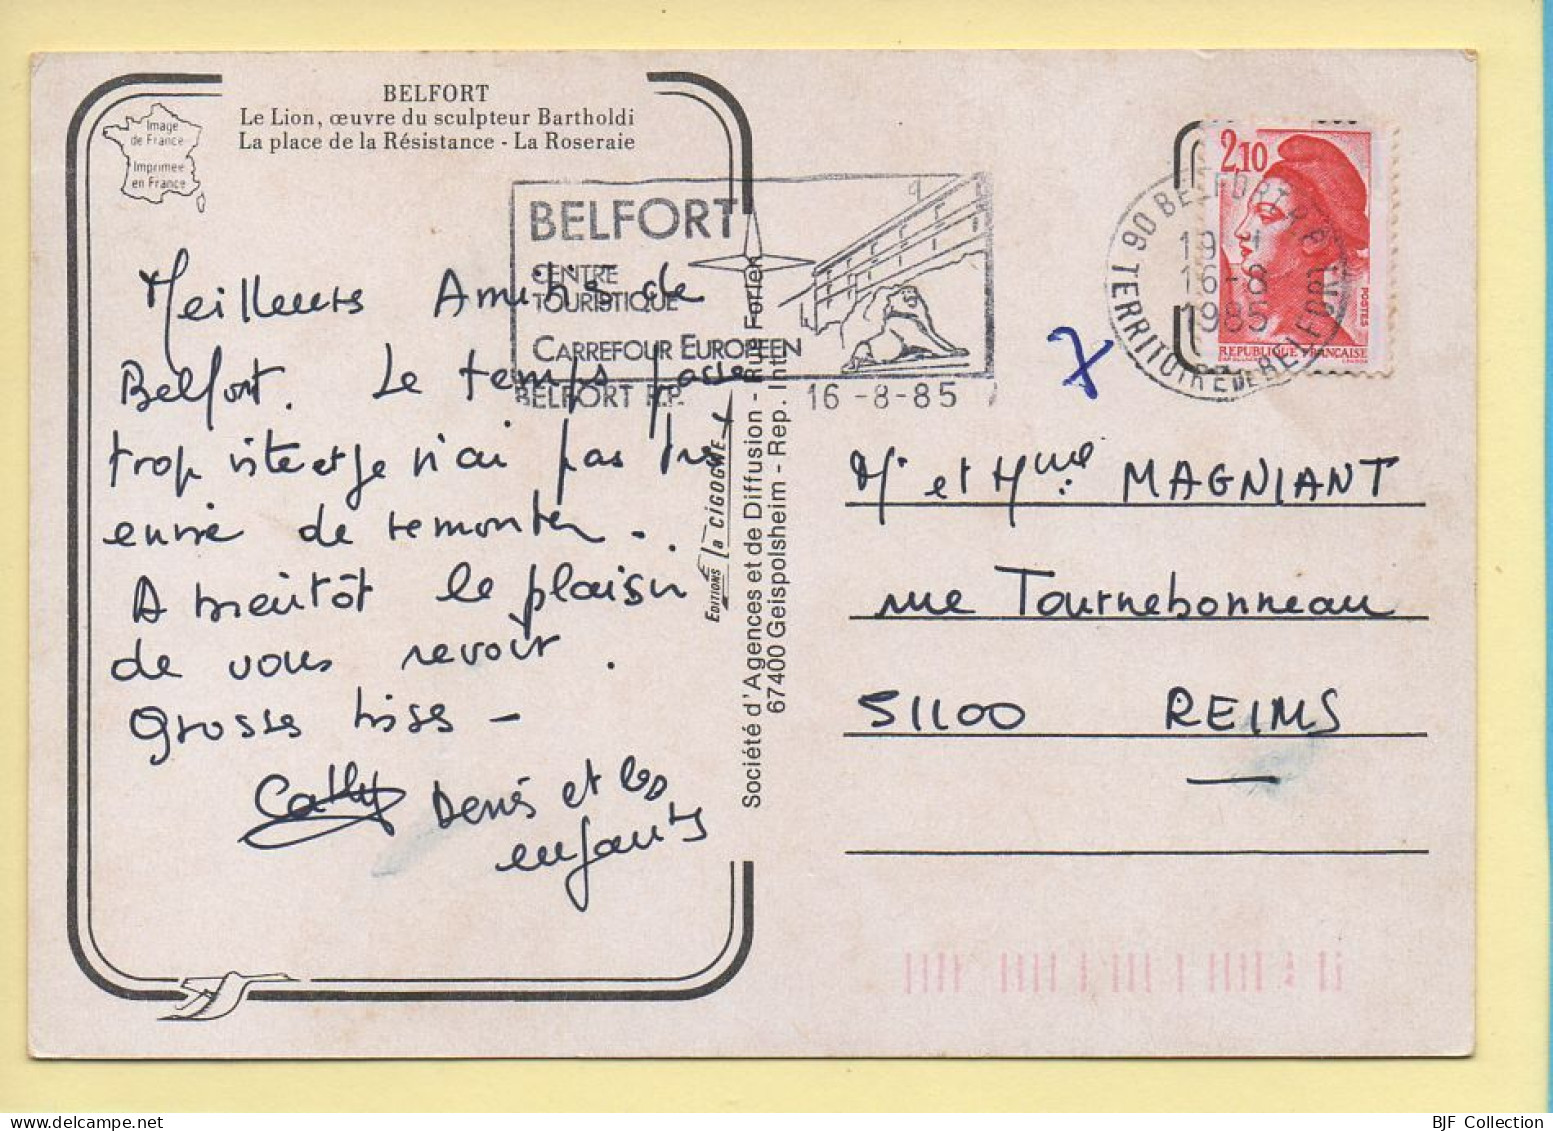 BELFORT
Le Lion, œuvre du sculpteur Bartholdi
La place de la Résistance - La Roseraie
Image
de France
Imprimée
en France
BELFORT
CENTRE
TOURISTIQUE
CARREFOUR EUROPEEN
BELFORT R.P. 16-8-85
90 BELFORT R.P.
19 H
16-8
1985
TERRITOIRE DE BELFORT
2,10
POSTES
REPUBLIQUE FRANÇAISE
Meilleures Amitiés de
Belfort. Le temps passe
trop vite et je n'ai pas très
envie de remonter -.
A bientôt le plaisir
de vous revoir.
Grosses bises -
Cathy Denis et les
enfants
EDITIONS la CIGOGNE
Société d'Agences et de Diffusion - Rue Forlen
67400 Geispolsheim - Rep. Int.
Mr et Mme MAGNIANT
rue Tournebonneau
51100 REIMS
BJF Collection